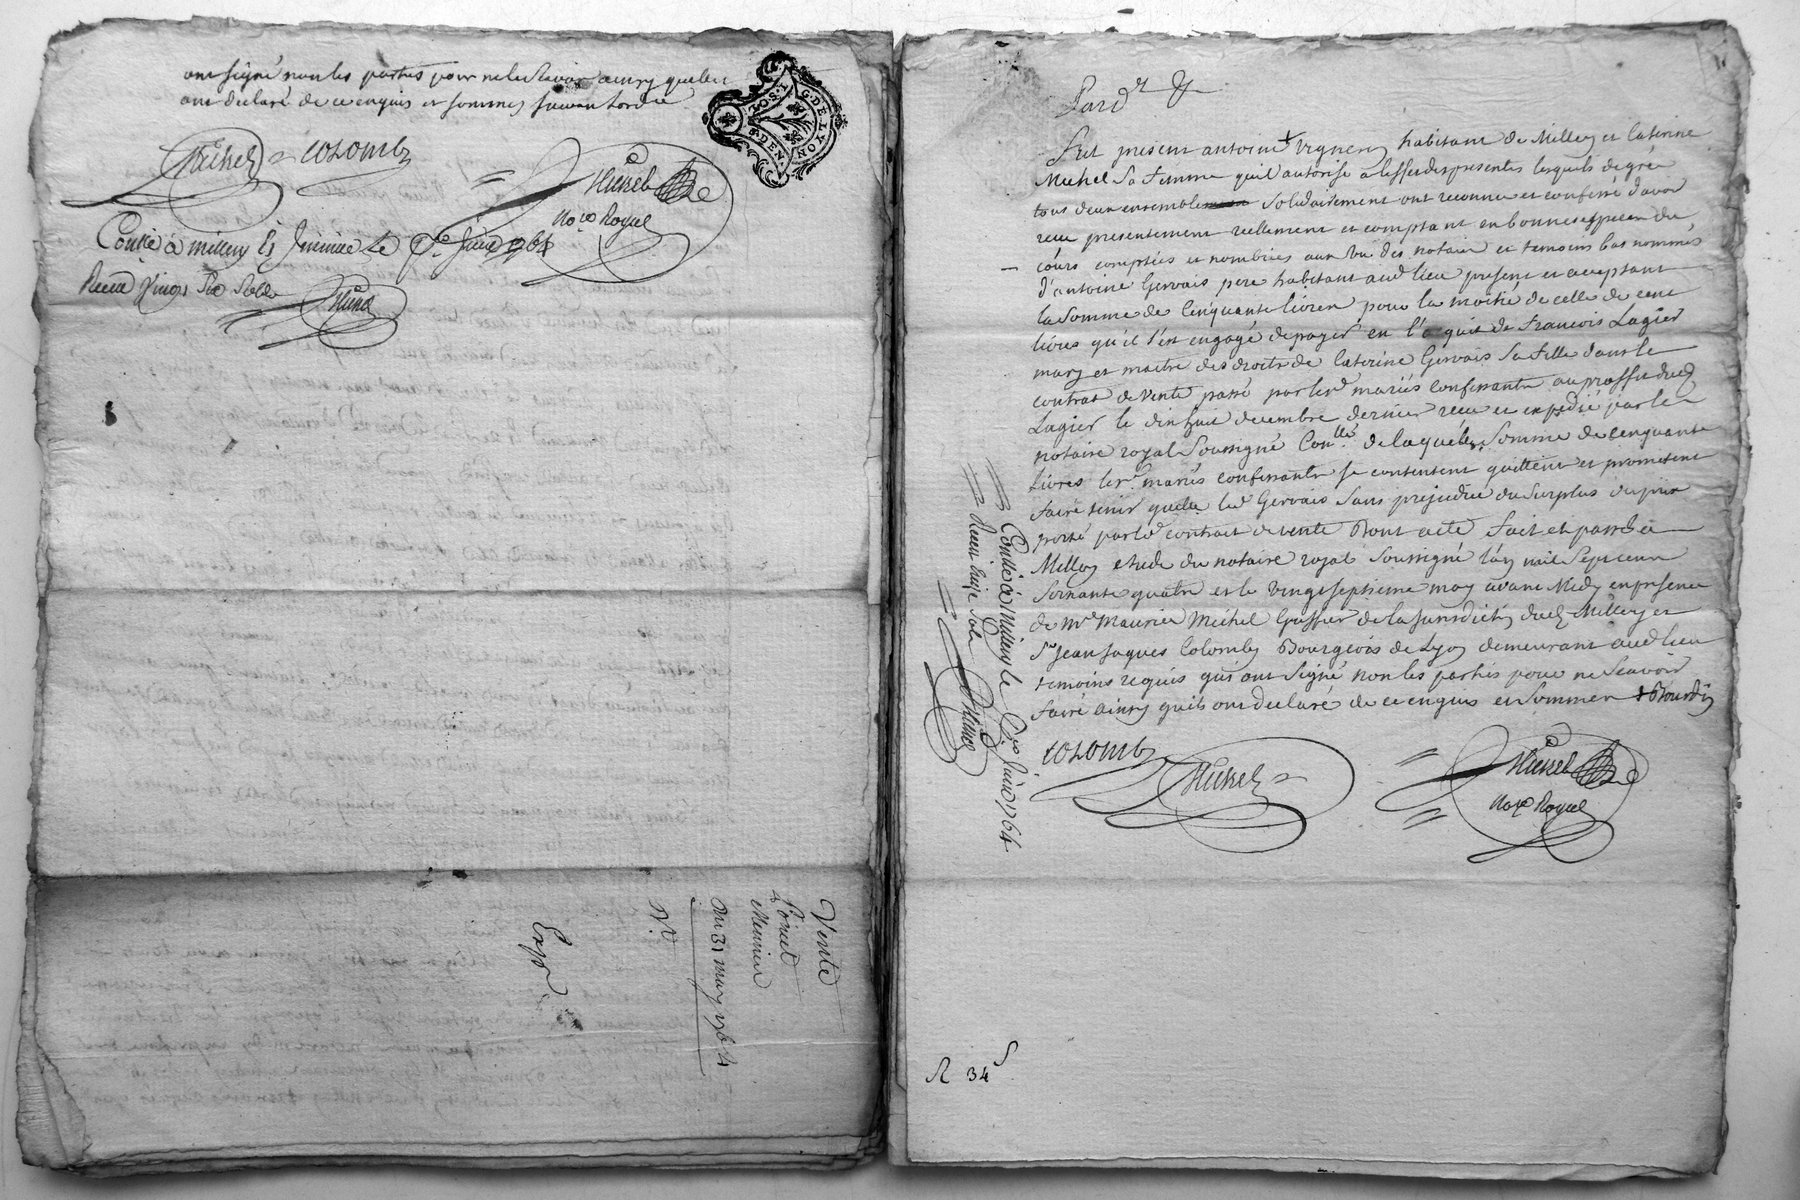 ont signé non les parties pour ne le scavoir ainsy quelles
ont declaré de ce enquis et sommes suivant lordce
G. DE LYON
2 SOLS. 4 DEN.
Michel
COLOMB
Michel
No.re Royal
Conllé à millery le Juin 1764
Receu Vingt Six Sols
Vente
Poncet
Meunier
Du 31 may 1764
No.
Expé
Pard.t
Fut present antoine + Vigner habitant de Millery et Caterine
Michel Sa Femme qu'il autorise a leffet des presentes lesquels de gré
tous deux ensemble solidairement ont reconnu et confessé d'avoir
receu presentement reellement et comptant en bonnes especes du
cours comptées et nombrées aux vu des notaire et temoins bas nommés
d'antoine Gervais pere habitant aud lieu present et acceptant
la somme de Cinquante livres pour la moitié de celle de cent
livres qu'il s'est engagé de payer en l'acquit de Francois Lagier
mary et maitre des droits de Caterine Gervais sa fille dans le
contrat de Vente passé par lesd mariés confessants au proffit dud
Lagier le dix huit decembre dernier receu et expedié par le
notaire royal Soussigné Conllé de laquelle Somme de Cinquante
Livres lesd mariés confessants se contentent quittent et promettent
faire tenir quitte led Gervais Sans prejudice du Surplus du prix
porté par led contrat de vente Dont acte Fait et passé a
Millery etude du notaire royal Soussigné l'an mil Sept cent
Soixante quatre et le Vingt septieme may avant Midy en presence
de Mre Maurice Michel Greffier de la Jurisdiction dud Millery et
Sr Jean Jaques Colomb Bourgeois de Lyon demeurant aud lieu
temoins requis qui ont Signé non les parties pour ne Scavoir
faire ainsy quils ont declaré de ce enquis et Sommes + Bourdin
COLOMB
Michel
Michel
No.re Royal
Conllé à Millery le Juin 1764
Receu treize Sols
R 34 S